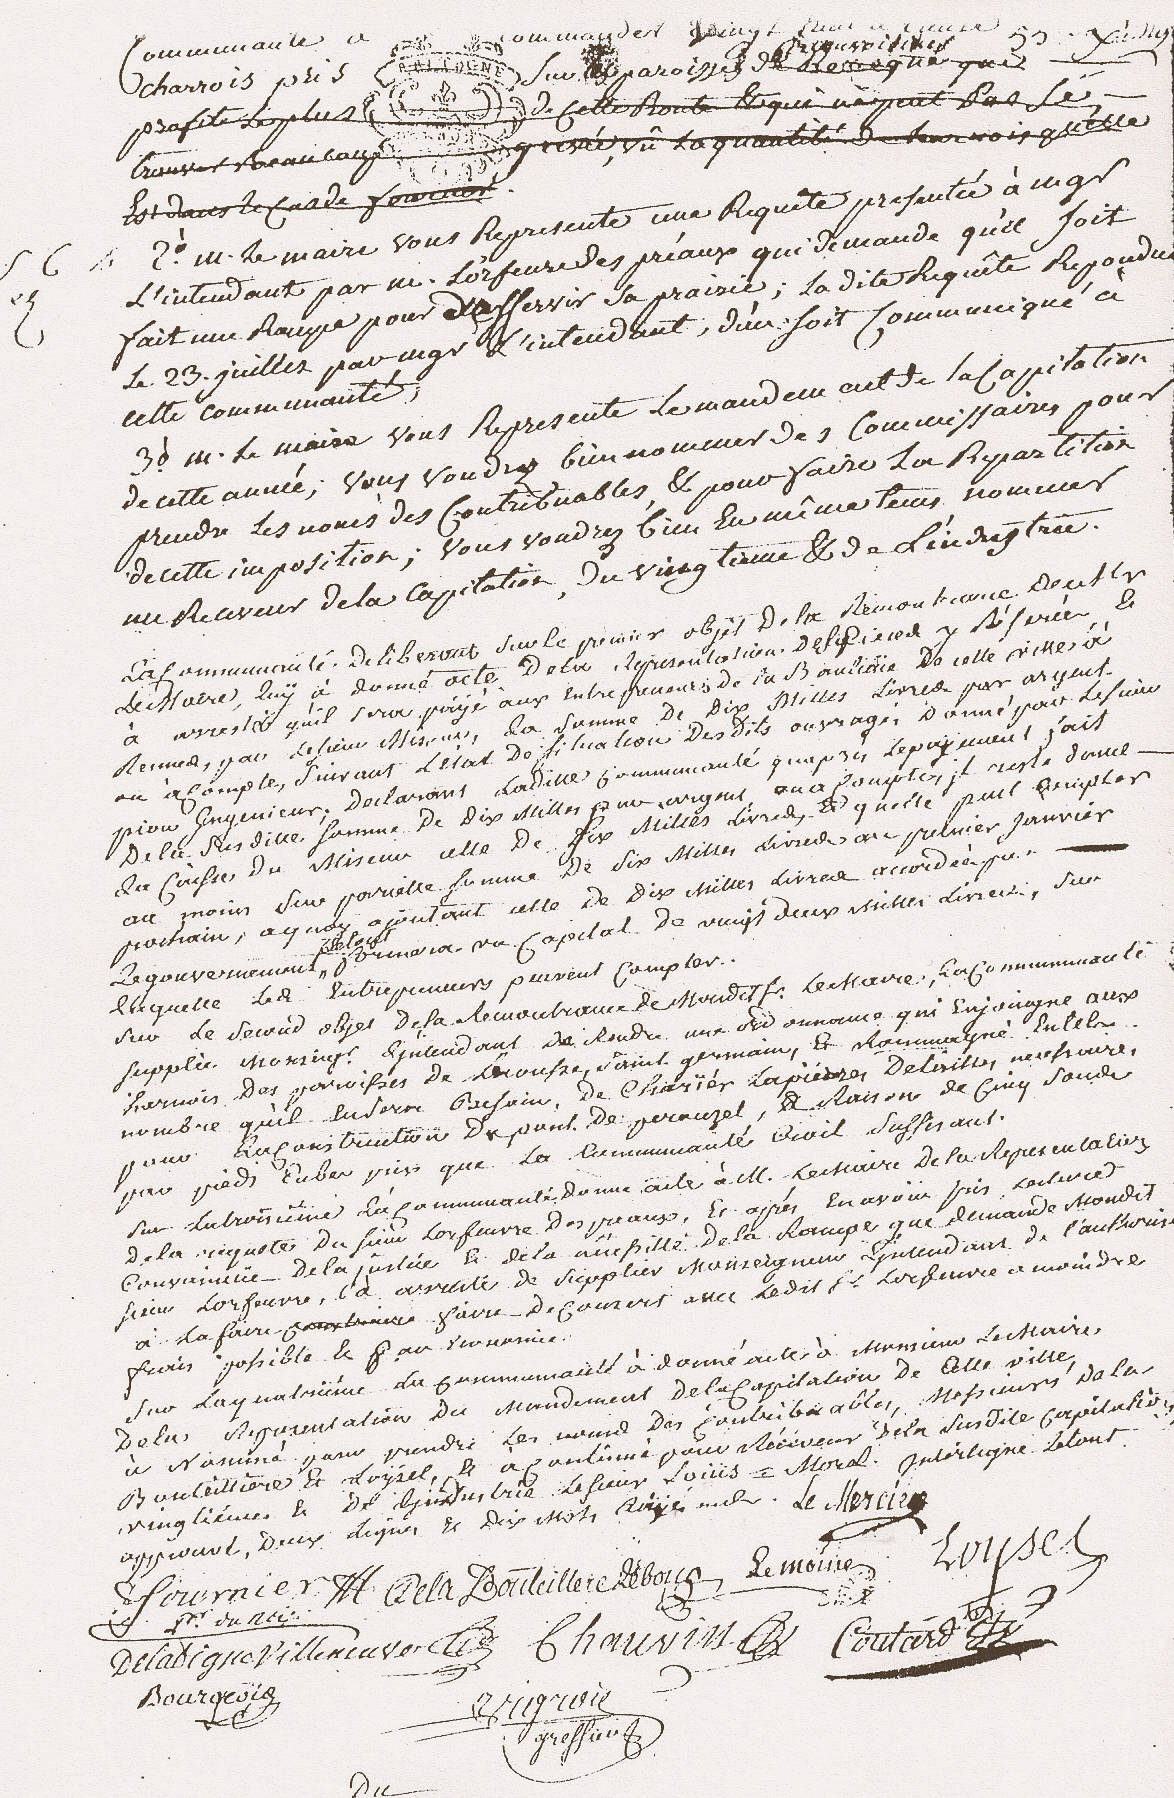 Communauté a commander vingt
charrois pris sur les paroisses de Remegné que
profite le plus de cette Route et qui n'ayent Pas se
trouver beaucoup grevée, vû la quantité de harnois qu'elle
Est dans le Cas de fournir.
2º. m. Le maire vous Represente une Requête presentée à mgr
L'intendant par m. Lorfeuvre des préaux qui demande qu'il soit
fait une Rampe pour desservir sa prairie; La dite Requête Repondue
Le 23. juillet par mgr L'intendant, d'un soit Communiqué à
cette communauté;
3º m. Le maire vous Represente Le mandement de la Capitation
de cette année; vous voudrez bien nommer des Commissaires pour
prendre Les noms des Contribuables, & pour faire La Repartition
de cette imposition; vous voudrez bien En même tems nommer
un Receveur de la Capitation, du vingtieme & de L'industrie.
La Communauté. Deliberant sur le premier objet De la Remontrance De M.
Le Maire, Luy à donné acte De la Representation Des Pieces y Referées, Et
à arresté qu'il sera payé aux Entrepreneurs de la Banlieüe De cette ville à
Rennes, par Le sieur Miseur, La somme De Dix Milles Livres par argent
ou àcompte, suivant L'état De situation Des dits ouvrages Donné par Le sieur
piou Ingenieur; Declarant Ladite Communauté qu'après Le payement fait
De la susditte somme De Dix Milles pour argent ou acompte, il reste dans
La Caisse Du Miseur celle De Six Milles Livres, Et qu'elle peut Compter
au moins sur pareille somme De Six Milles Livres au premier Janvier
prochain, aquoy ajoutant celle De Dix Milles Livres accordée par
Le gouvernement, Le tout formera un Capital de vingt deux Milles Livres, sur
Laquelle Les Entrepreneurs peuvent Compter.
Sur Le Second objet De la Remontrance De Mondit Sr. Le Maire, La Communauté
supplie Monseigr. L'intendant De Rendre une ordonnance qui Enjoingne aux
harnois Des paroisses De Lecousse, saint germain, Et Rommagné En tel
nombre qu'il En sera Besoin, De Charier La pierres De tailles necessaires
pour La Construction Du pont De perouzel, à Raison de Cinq sous
par pieds Cube prix que La Communauté Croit suffisant.
Sur La troisième La Communauté Donne acte à M. Le Maire De la Representation
De la requete Du sieur Lorfeuvre Des preaux, Et après En avoir pris Lecture
Convaincüe De la justice Et de la necessité De la Rampe que demande Mondit
sieur Lorfeuvre, L'à arresté De supplier Monseigneur L'intendant De l'authoriser
à La faire faire De Concert avec Ledit Sr. Lorfeuvre a moindre
frais possible Et par économie.
Sur La quatrième La Communauté à donné acte à Monsieur Le Maire,
De la Representation Du Mandement De la Capitation De Cette ville,
à Nommé pour prendre Les noms Des Contribuables, Messieurs De la
Bouteillière Et Loysel, Et à Continué pour Receveur De la susdite Capitation
vingtième Et De L'industrie Le sieur Loüis Morel. Interligne Le tout
approuvé, Deux Lignes Et Dix Mots Rayés nuls. Le Mercier
Fournier De la Bouteillere Le moine Loysel
Pr. du Roi
De Ladigne Villeneuve Chauvin Coutard
Bourgeois
greffier
Du